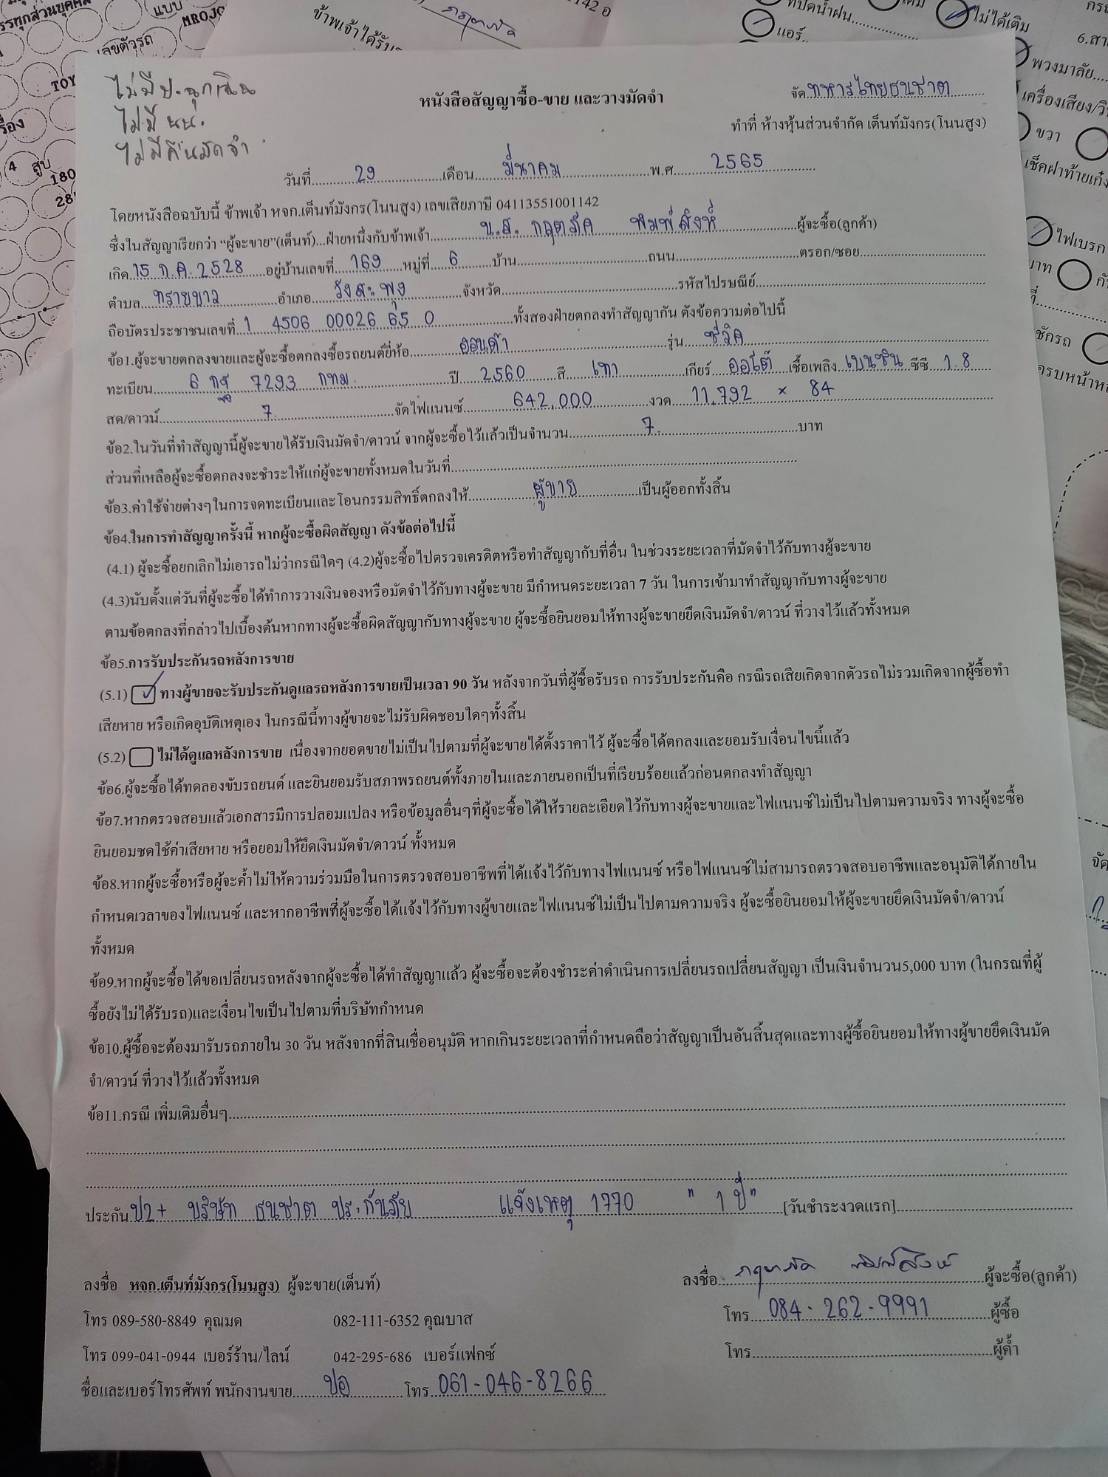 ไม่มี ป.ฉุกเฉิน
ไม่มี นน.
ไม่มีคืนมัดจำ
หนังสือสัญญาซื้อ-ขาย และวางมัดจำ
จัด ทหารไทยธนชาต
ทำที่ ห้างหุ้นส่วนจำกัด เต็นท์มังกร(โนนสูง)
วันที่ 29 เดือน มีนาคม พ.ศ. 2565
โดยหนังสือฉบับนี้ ข้าพเจ้า หจก.เต็นท์มังกร(โนนสูง) เลขเสียภาษี 04113551001142
ซึ่งในสัญญาเรียกว่า "ผู้จะขาย"(เต็นท์)...ฝ่ายหนึ่งกับข้าพเจ้า น.ส. กฤตภัค พิมพ์สิงห์ ผู้จะซื้อ(ลูกค้า)
เกิด 15 ก.ค. 2528 อยู่บ้านเลขที่ 169 หมู่ที่ 6 บ้าน ถนน ตรอก/ซอย
ตำบล ทรายขาว อำเภอ วังสะพุง จังหวัด รหัสไปรษณีย์
ถือบัตรประชาชนเลขที่ 1 4506 00026 65 0 ทั้งสองฝ่ายตกลงทำสัญญากัน ดังข้อความต่อไปนี้
ข้อ1.ผู้จะขายตกลงขายและผู้จะซื้อตกลงซื้อรถยนต์ยี่ห้อ ฮอนด้า รุ่น ซีวิค
ทะเบียน 6 กฐ 7293 กทม ปี 2560 สี เทา เกียร์ ออโต้ เชื้อเพลิง เบนซิน ซีซี 1.8
สด/ดาวน์ 7 จัดไฟแนนซ์ 642,000 งวด 11,792 × 84
ข้อ2.ในวันที่ทำสัญญานี้ผู้จะขายได้รับเงินมัดจำ/ดาวน์ จากผู้จะซื้อไว้แล้วเป็นจำนวน 7 บาท
ส่วนที่เหลือผู้จะซื้อตกลงจะชำระให้แก่ผู้จะขายทั้งหมดในวันที่
ข้อ3.ค่าใช้จ่ายต่างๆในการจดทะเบียนและโอนกรรมสิทธิ์ตกลงให้ ผู้ขาย เป็นผู้ออกทั้งสิ้น
ข้อ4.ในการทำสัญญาครั้งนี้ หากผู้จะซื้อผิดสัญญา ดังข้อต่อไปนี้
(4.1) ผู้จะซื้อยกเลิกไม่เอารถไม่ว่ากรณีใดๆ (4.2)ผู้จะซื้อไปตรวจเครดิตหรือทำสัญญากับที่อื่น ในช่วงระยะเวลาที่มัดจำไว้กับทางผู้จะขาย
(4.3)นับตั้งแต่วันที่ผู้จะซื้อได้ทำการวางเงินจองหรือมัดจำไว้กับทางผู้จะขาย มีกำหนดระยะเวลา 7 วัน ในการเข้ามาทำสัญญากับทางผู้จะขาย
ตามข้อตกลงที่กล่าวไปเบื้องต้นหากทางผู้จะซื้อผิดสัญญากับทางผู้จะขาย ผู้จะซื้อยินยอมให้ทางผู้จะขายยึดเงินมัดจำ/ดาวน์ ที่วางไว้แล้วทั้งหมด
ข้อ5.การรับประกันรถหลังการขาย
(5.1) ทางผู้ขายจะรับประกันดูแลรถหลังการขายเป็นเวลา 90 วัน หลังจากวันที่ผู้ซื้อรับรถ การรับประกันคือ กรณีรถเสียเกิดจากตัวรถไม่รวมเกิดจากผู้ซื้อทำ
เสียหาย หรือเกิดอุบัติเหตุเอง ในกรณีนี้ทางผู้ขายจะไม่รับผิดชอบใดๆทั้งสิ้น
(5.2) ไม่ได้ดูแลหลังการขาย เนื่องจากยอดขายไม่เป็นไปตามที่ผู้จะขายได้ตั้งราคาไว้ ผู้จะซื้อได้ตกลงและยอมรับเงื่อนไขนี้แล้ว
ข้อ6.ผู้จะซื้อได้ทดลองขับรถยนต์ และยินยอมรับสภาพรถยนต์ทั้งภายในและภายนอกเป็นที่เรียบร้อยแล้วก่อนตกลงทำสัญญา
ข้อ7.หากตรวจสอบแล้วเอกสารมีการปลอมแปลง หรือข้อมูลอื่นๆที่ผู้จะซื้อได้ให้รายละเอียดไว้กับทางผู้จะขายและไฟแนนซ์ไม่เป็นไปตามความจริง ทางผู้จะซื้อ
ยินยอมชดใช้ค่าเสียหาย หรือยอมให้ยึดเงินมัดจำ/ดาวน์ ทั้งหมด
ข้อ8.หากผู้จะซื้อหรือผู้จะค้ำไม่ให้ความร่วมมือในการตรวจสอบอาชีพที่ได้แจ้งไว้กับทางไฟแนนซ์ หรือไฟแนนซ์ไม่สามารถตรวจสอบอาชีพและอนุมัติได้ภายใน
กำหนดเวลาของไฟแนนซ์ และหากอาชีพที่ผู้จะซื้อได้แจ้งไว้กับทางผู้ขายและไฟแนนซ์ไม่เป็นไปตามความจริง ผู้จะซื้อยินยอมให้ผู้จะขายยึดเงินมัดจำ/ดาวน์
ทั้งหมด
ข้อ9.หากผู้จะซื้อได้ขอเปลี่ยนรถหลังจากผู้จะซื้อได้ทำสัญญาแล้ว ผู้จะซื้อจะต้องชำระค่าดำเนินการเปลี่ยนรถเปลี่ยนสัญญา เป็นเงินจำนวน5,000 บาท (ในกรณที่ผู้
ซื้อยังไม่ได้รับรถ)และเงื่อนไขเป็นไปตามที่บริษัทกำหนด
ข้อ10.ผู้ซื้อจะต้องมารับรถภายใน 30 วัน หลังจากที่สินเชื่ออนุมัติ หากเกินระยะเวลาที่กำหนดถือว่าสัญญาเป็นอันสิ้นสุดและทางผู้ซื้อยินยอมให้ทางผู้ขายยึดเงินมัด
จำ/ดาวน์ ที่วางไว้แล้วทั้งหมด
ข้อ11.กรณี เพิ่มเติมอื่นๆ
ประกัน ป2+ บริษัท ธนชาต ประกันภัย แจ้งเหตุ 1770 " 1 ปี" [วันชำระงวดแรก]
ลงชื่อ หจก.เต็นท์มังกร(โนนสูง) ผู้จะขาย(เต็นท์)
ลงชื่อ กฤตภัค พิมพ์สิงห์ ผู้จะซื้อ(ลูกค้า)
โทร 089-580-8849 คุณมด 082-111-6352 คุณบาส
โทร 084-262-9991 ผู้ซื้อ
โทร 099-041-0944 เบอร์ร้าน/ไลน์ 042-295-686 เบอร์แฟกซ์
โทร ผู้ค้ำ
ชื่อและเบอร์โทรศัพท์ พนักงานขาย ปอ โทร 061-046-8266